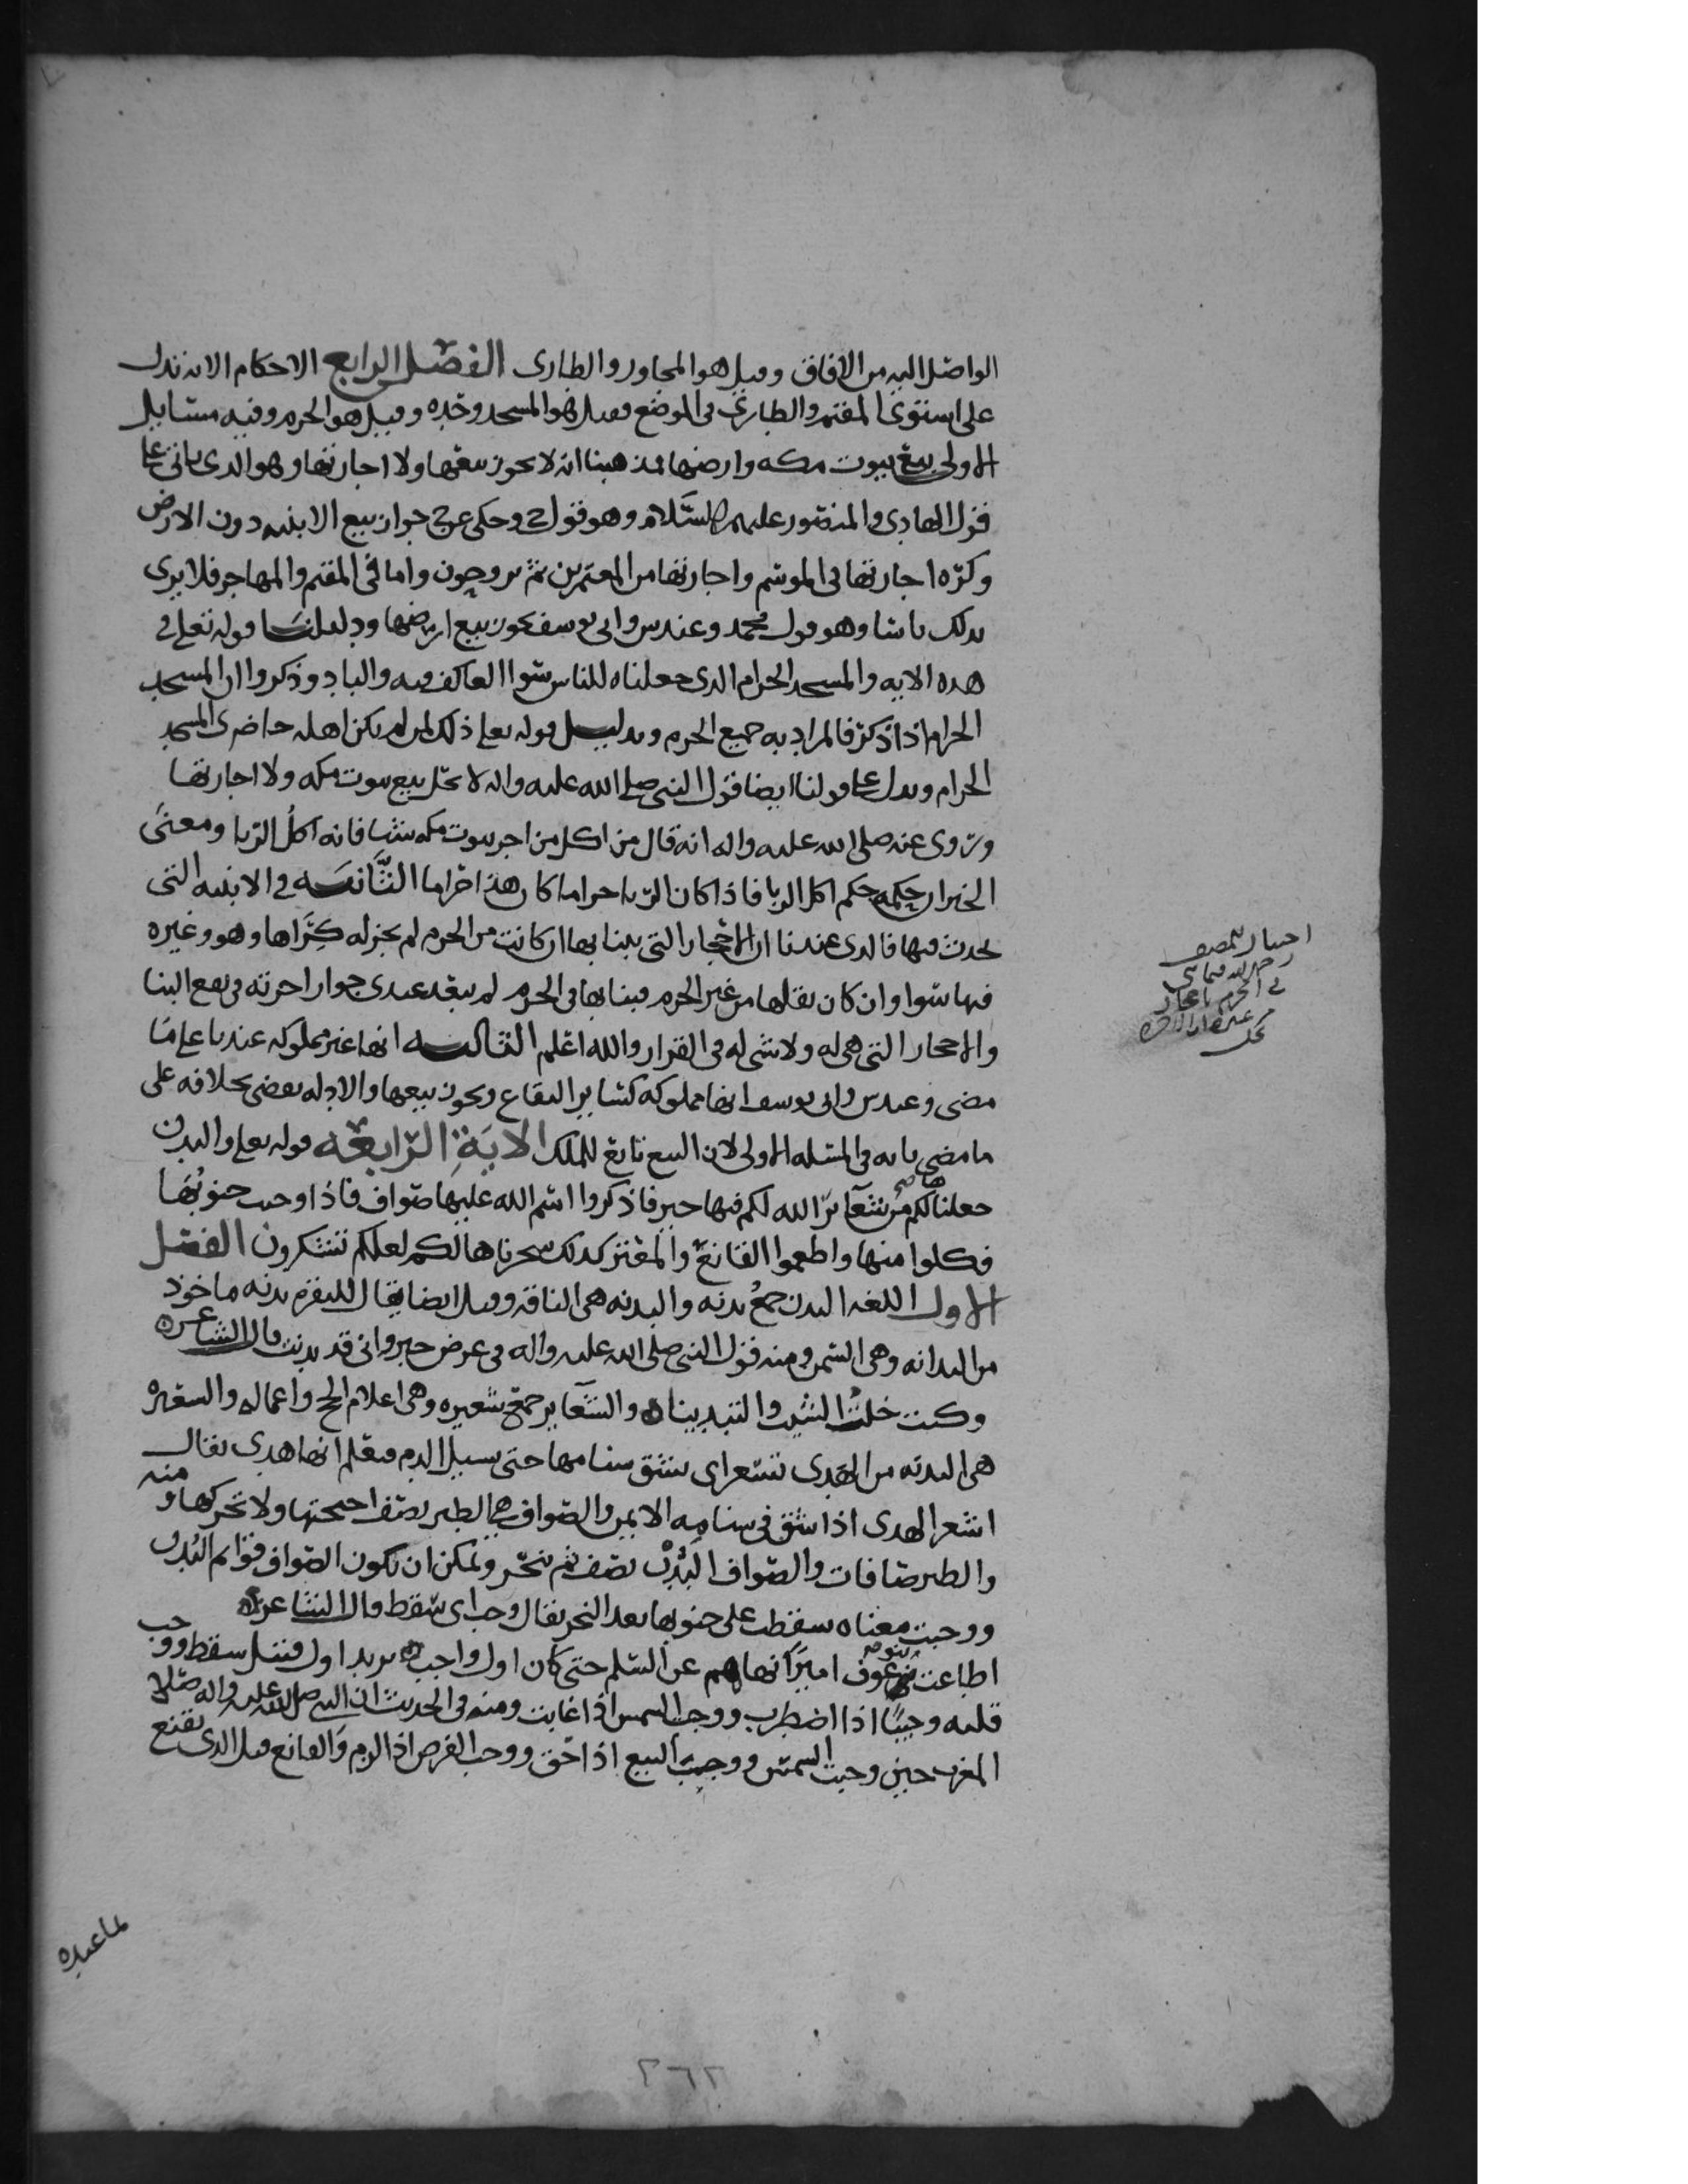 الواصل اليه من الافاق وقيل هو المجاور والطاري الفصل الرابع الاحكام الايه تدل
على استوى المقيم والطاري في الموضع وقيل هو المسجد وحده وقيل هو الحرم وفيه مسايل
الاولى بيع بيوت مكه وارضها فمذهبنا انه لا يجوز بيعها ولا اجارتها وهو الذي ياتي على
قول الهادي والمنصور عليهم السلام وهو قول ك وحكى عن ح جواز بيع الابنيه دون الارض
وكره اجارتها في الموسم واجارتها من المعتمرين ثم يروحون واما في المقيم والمهاجر فلا يرى
بذلك باسا وهو قول محمد وعند ش وابي يوسف يجوز بيع ارضها ودليلنا قوله تعلى في
هذه الايه والمسجد الحرام الذي جعلناه للناس سوا العاكف فيه والباد وذكروا ان المسجد
الحرام اذا ذكر فالمراد به جميع الحرم وبدليل قوله تعلى ذلك لمن لم يكن اهله حاضري المسجد
الحرام ويدل على قولنا ايضا قول النبي صلى الله عليه واله لا تحل بيع بيوت مكه ولا اجارتها
وروي عنه صلى الله عليه واله انه قال من اكل من اجر بيوت مكه شيا فانه اكل الربا ومعنى
الخبر ان حكمه حكم اكل الربا فاذا كان الربا حراما كان هذا حراما الثانيه في الابنيه التي
يحدث فيها فالذي عندنا ان الاحجار التي يبنا بها ان كانت من الحرم لم يجز له كراها وهو وغيره
فيها سوا وان كان نقلها من غير الحرم فبنا بها في الحرم لم يبعد عندي جواز اجرته في نفع البنا
والاحجار التي هي له ولا شي له في القرار والله اعلم الثالثه انها غير مملوكه عندنا على ما
مضى وعند ش وابي يوسف انها مملوكه كساير البقاع ويجوز بيعها والادله تقضي بخلافه على
ما مضى بيانه في المسله الاولى لان البيع تابع للملك الايه الرابعه قوله تعلى والبدن
جعلناها لكم من شعاير الله لكم فيها خير فاذكروا اسم الله عليها صواف فاذا وجبت جنوبها
فكلوا منها واطعموا القانع والمعتر كذلك سخرناها لكم لعلكم تشكرون الفصل
الاول اللغه البدن جمع بدنه والبدنه هي الناقه وقيل ايضا يقال للبقره بدنه ماخوذ
من البدانه وهي السمن ومنه قول النبي صلى الله عليه واله في عرض خبر واني قد بدنت قال الشاعر ه
وكنت خلت الشيب والتبدينا ه والشعاير جمع شعيره وهي اعلام الحج واعماله والشعيره
هي البدنه من الهدي تشعر اي يشق سنامها حتى يسيل الدم فيعلم انها هدي يقال
اشعر الهدي اذا شق في سنامه الايمن والصواف هي الطير تصف اجنحتها ولا تحركها ومنه
والطير صافات والصواف البدن تصف ثم تنحر ويمكن ان تكون الصواف قوايم البدن
ووجبت معناه سقطت على جنوبها بعد النحر يقال وجب اي سقط قال الشاعر ه
اطاعت بنو عوف اميرا نهاهم عن السلم حتى كان اول واجب ه يريد اول قتيل سقط ووجب
قلبه وجيبا اذا اضطرب ووجب الشمس اذا غابت ومنه في الحديث ان النبي صلى الله عليه واله صلا
المغرب حين وجبت الشمس ووجبت البيع اذا حق ووجب الفرض اذا لزم والقانع قيل الذي يقنع
اختيار للمصنف
رحمه الله فيما بني
في الحرم باحجار
بما عنده
٢٦٢